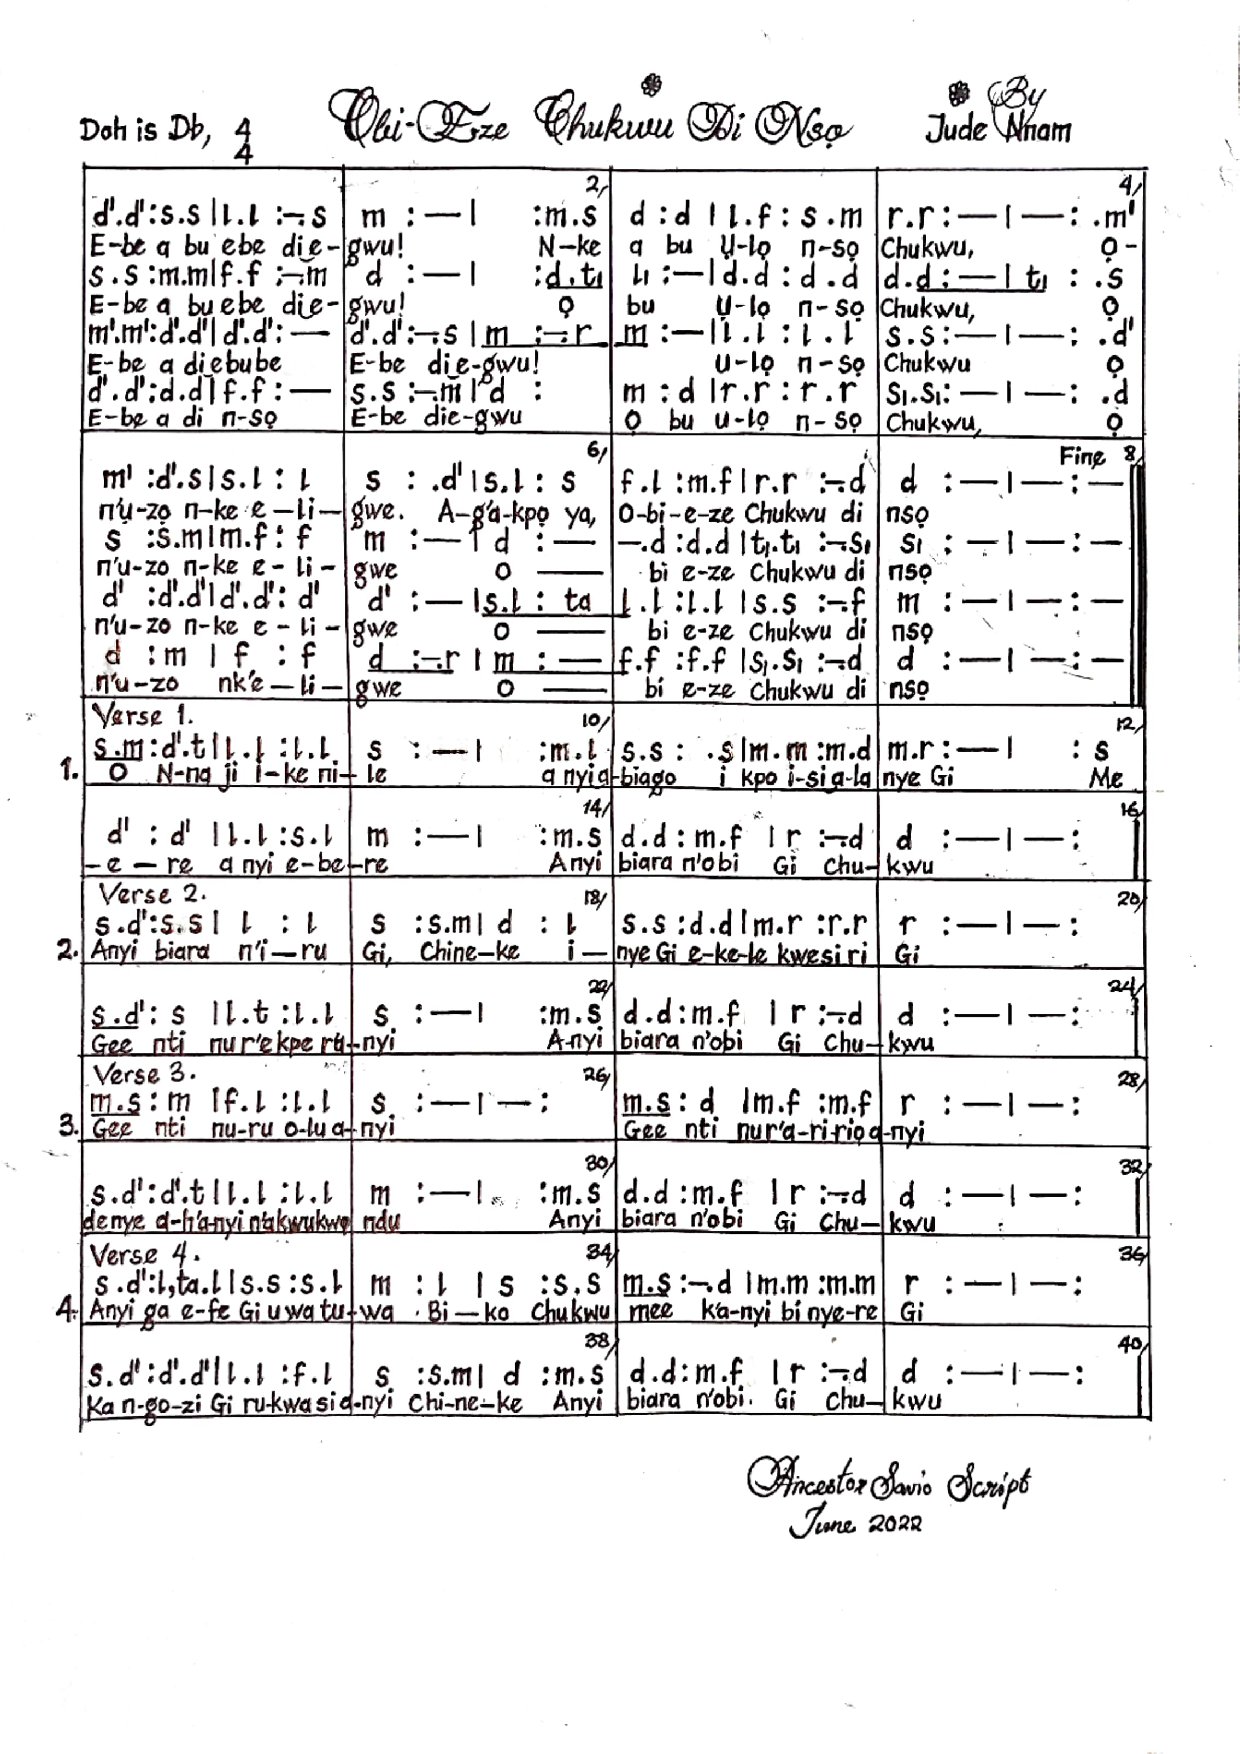 Doh is Db, 4/4 Obi-Eze Chukwu Di Nsọ By Jude Nnam
2, 4,
d'.d':s.s|l.l :-.s | m :—| :m.s | d :d |l.f : s.m | r.r :—|—: .m'
E-be a bu ebe die- gwu! N-ke a bu Ụ-lọ n-sọ Chukwu, Ọ-
s.s :m.m|f.f :-.m | d :—| :d.t₁ | l₁ :—|d.d : d.d | d.d :—| t₁ : .s
E-be a bu ebe die- gwu! Ọ bu Ụ-lọ n-sọ Chukwu, Ọ
m'.m':d'.d'|d'.d':— | d'.d':-.s|m :-.r | m :—|l.l : l.l | s.s :—|—: .d'
E-be a diebube E-be die-gwu! u-lọ n-sọ Chukwu Ọ
d'.d':d.d|f.f :— | s.s :-.m|d : | m :d |r.r : r.r | s₁.s₁:—|—: .d
E-be a di n-sọ E-be die-gwu Ọ bu u-lọ n-sọ Chukwu, Ọ
6, Fine 8,
m' :d'.s|s.l : l | s : .d'|s.l : s | f.l :m.f|r.r :-.d | d :—|—:—
n'ụ-zọ n-ke e-li- gwe. A-g'a-kpọ ya, O-bi-e-ze Chukwu di nsọ
s :s.m|m.f : f | m :—|d :— | —.d :d.d|t₁.t₁ :-.s₁ | s₁ :—|—:—
n'u-zo n-ke e-li- gwe O —— bi e-ze Chukwu di nsọ
d' :d'.d'|d'.d': d' | d' :—|s.l : ta | l.l :l.l |s.s :-.f | m :—|—:—
n'u-zo n-ke e-li- gwe O —— bi e-ze Chukwu di nsọ
d :m | f : f | d :-.r | m :— | f.f :f.f |s₁.s₁ :-.d | d :—|—:—
n'u-zo nk'e-li- gwe O —— bi e-ze Chukwu di nsọ
Verse 1. 10, 12,
s.m:d'.t|l.l :l.l | s :—| :m.l | s.s : .s|m.m :m.d | m.r :—| : s
1. O N-na ji i-ke ni- le a nyi a-biago i kpo i-si a-la nye Gi Me
14, 16,
d' : d' |l.l :s.l | m :—| :m.s | d.d : m.f | r :-.d | d :—|—:
-e-re a nyi e-be-re Anyi biara n'obi Gi Chu- kwu
Verse 2. 18, 20,
s.d':s.s| l : l | s :s.m| d : l | s.s :d.d|m.r :r.r | r :—|—:
2. Anyi biara n'i-ru Gi, Chine-ke i- nye Gi e-ke-le kwesiri Gi
22, 24,
s.d': s |l.t :l.l | s :—| :m.s | d.d:m.f | r :-.d | d :—|—:
Gee nti nur'ekpe ra-nyi A-nyi biara n'obi Gi Chu- kwu
Verse 3. 26, 28,
m.s : m |f.l :l.l | s :—|—: | m.s : d |m.f :m.f | r :—|—:
3. Gee nti nu-ru o-lu a-nyi Gee nti nur'a-ri rio a-nyi
30, 32,
s.d':d'.t|l.l :l.l | m :—| :m.s | d.d :m.f | r :-.d | d :—|—:
denye a-h'anyi n'akwukwo ndu Anyi biara n'obi Gi Chu- kwu
Verse 4. 34, 36,
s.d':l,ta.l|s.s :s.l | m : l | s :s.s | m.s :-.d |m.m :m.m | r :—|—:
4. Anyi ga e-fe Gi uwa tu-wa Bi-ko Chukwu mee Ka-nyi bi nye-re Gi
38, 40,
s.d':d'.d'|l.l :f.l | s :s.m| d :m.s | d.d:m.f | r :-.d | d :—|—:
Ka n-go-zi Gi ru-kwasi a-nyi Chi-ne-ke Anyi biara n'obi. Gi Chu- kwu
Ancestor Savio Script
June 2022